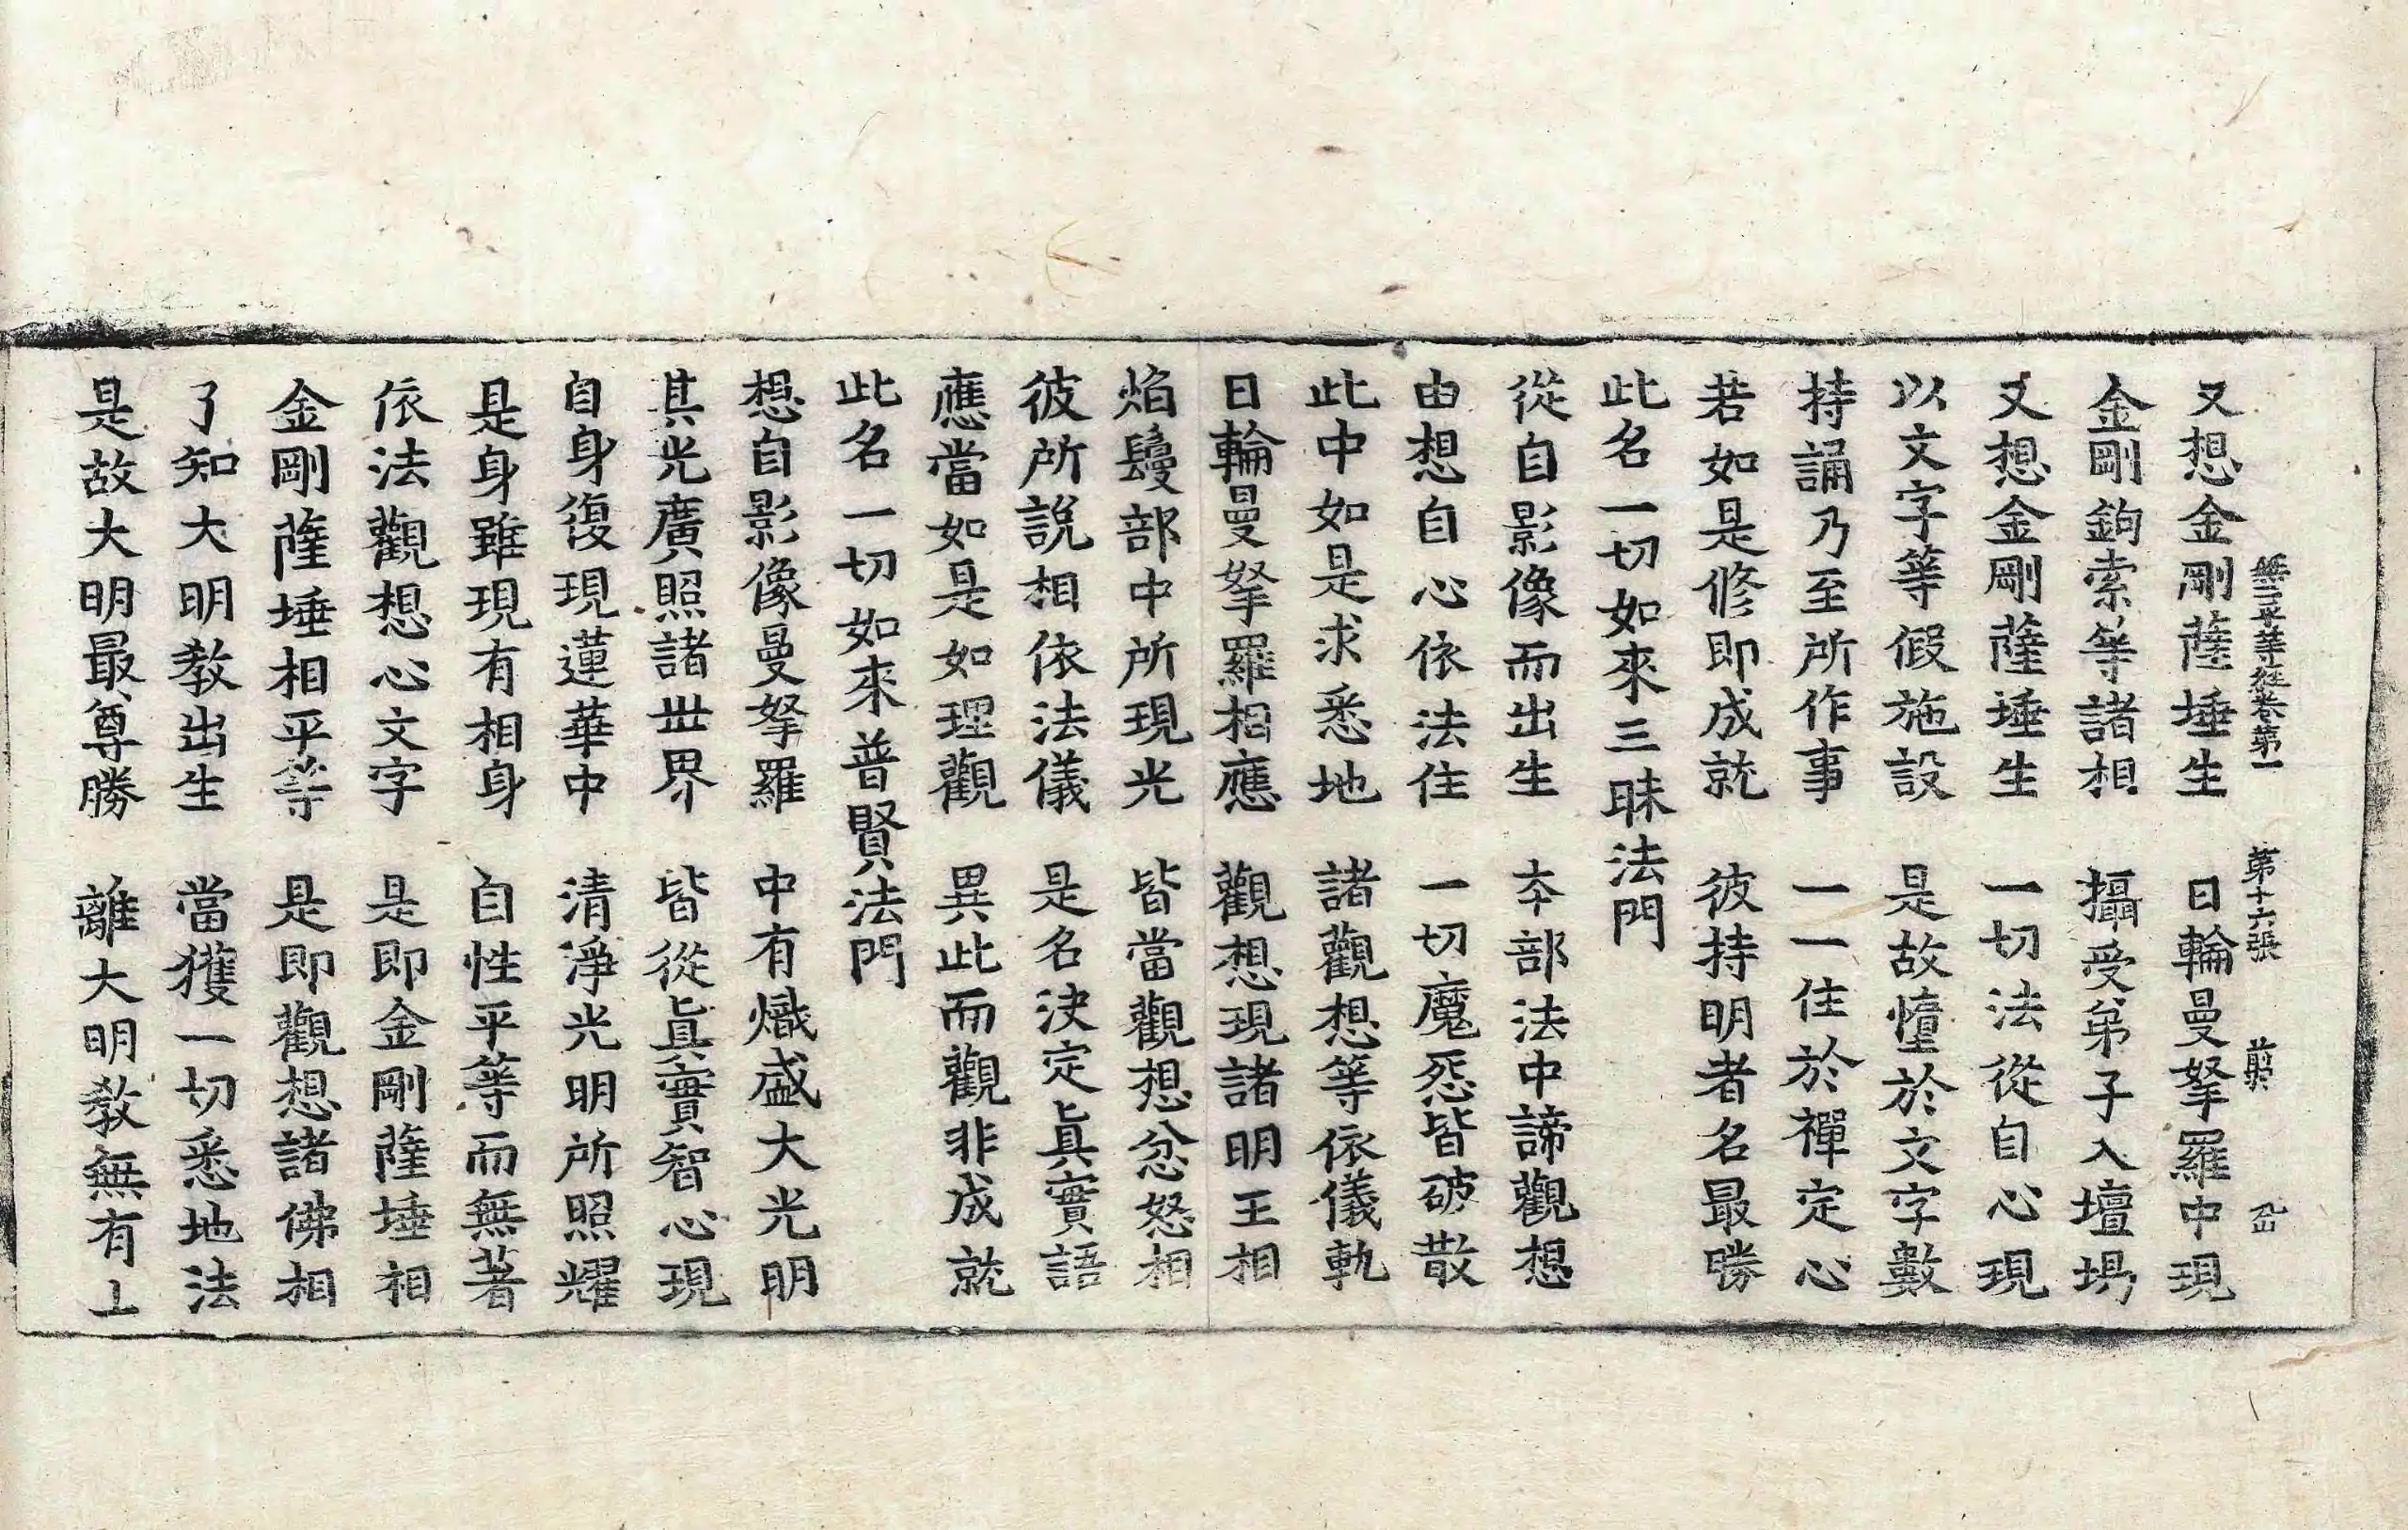 又想金剛薩埵生　日輪曼拏羅中現
無二平等經卷第一　第十六張
金剛鉤索等諸相　攝受弟子入壇場
又想金剛薩埵生　一切法從自心現
以文字等假施設　是故憧於文字數
持誦乃至所作事　一一住於禪定心
若如是修即成就　彼持明者名最勝
此名一切如來三昧法門
從自影像而出生　本部法中諦觀想
由想自心依法住　一切魔怨皆破散
此中如是求悉地　諸觀想等依儀軌
日輪曼拏羅相應　觀想現諸明王相
焰鬘部中所現光　皆當觀想忿怒相
彼所說相依法儀　是名決定眞實語
應當如是如理觀　異此而觀非成就
此名一切如來普賢法門
想自影像曼拏羅　中有熾盛大光明
其光廣照諸世界　皆從眞實智心現
自身復現蓮華中　清淨光明所照耀
是身雖現有相身　自性平等而無著
依法觀想心文字　是即金剛薩埵相
金剛薩埵相平等　是即觀想諸佛相
了知大明教出生　當獲一切悉地法
是故大明最尊勝　離大明教無有上